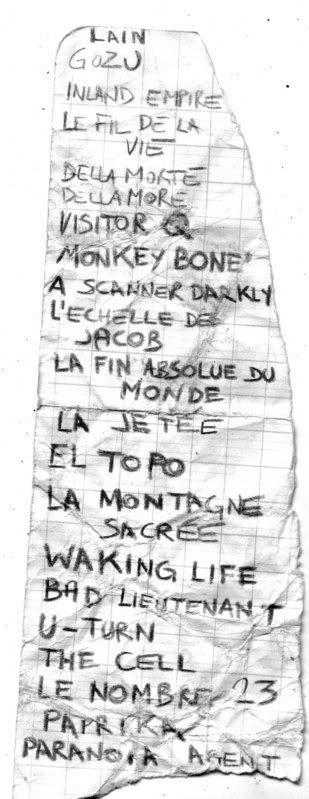 LAIN
GOZU
INLAND EMPIRE
LE FIL DE LA
VIE
DELLA MORTE
DELLAMORE
VISITOR Q
MONKEY BONE
A SCANNER DARKLY
L'ECHELLE DE
JACOB
LA FIN ABSOLUE DU
MONDE
LA JETEE
EL TOPO
LA MONTAGNE
SACRÉE
WAKING LIFE
BAD LIEUTENANT
U-TURN
THE CELL
LE NOMBRE 23
PAPRIKA
PARANOIA AGENT